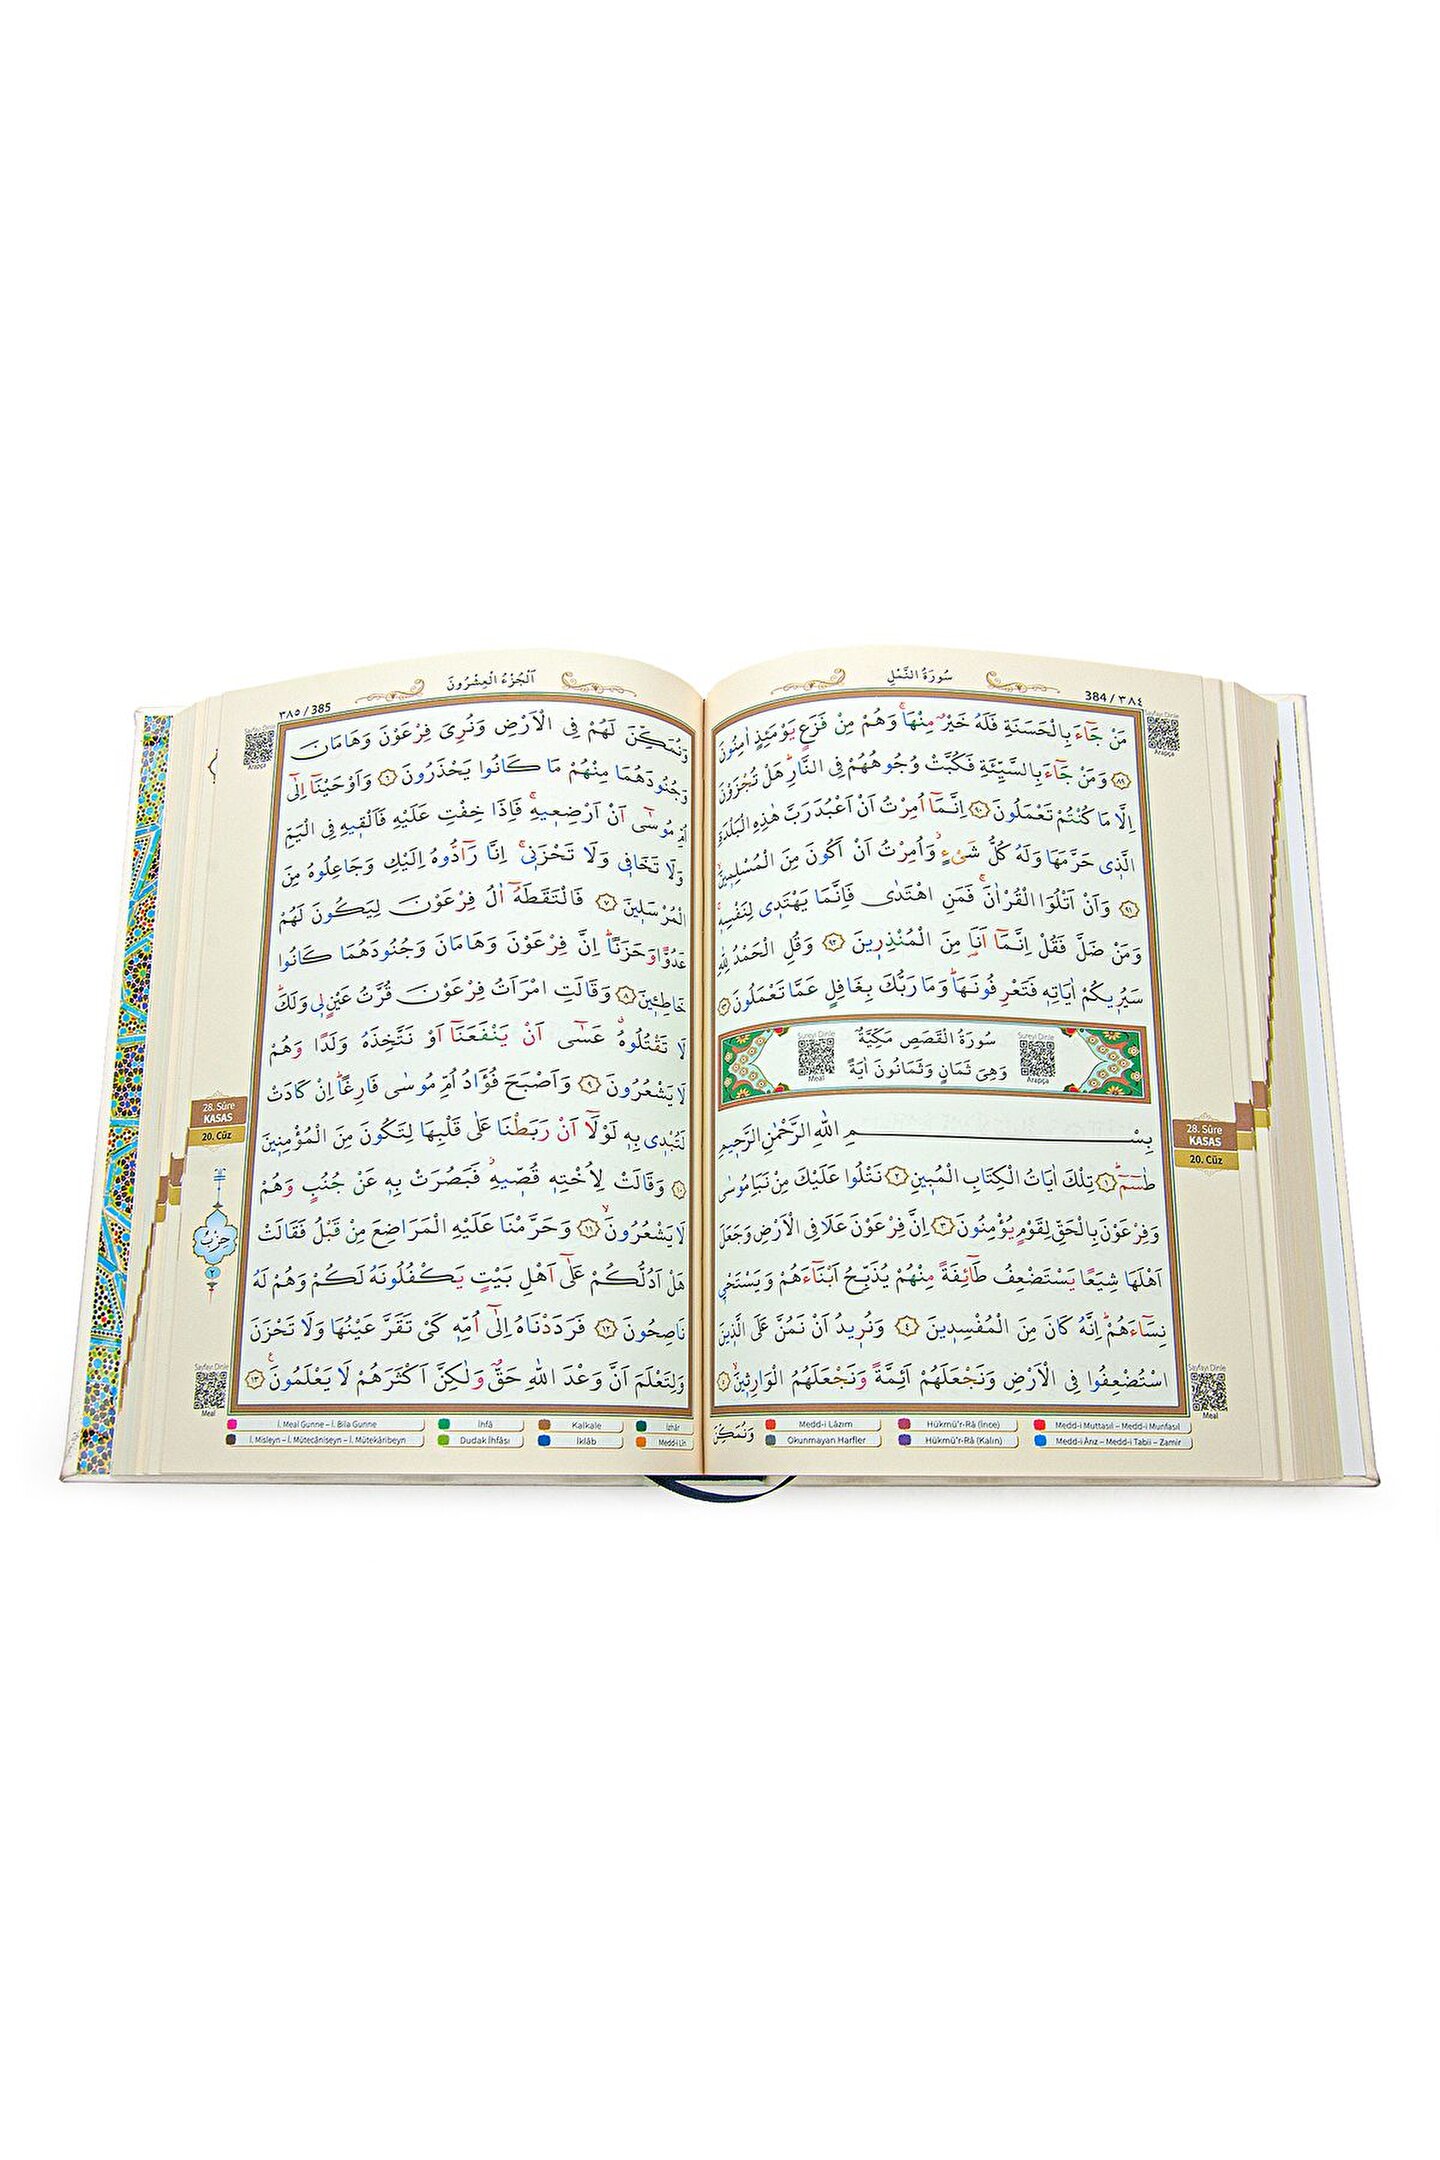 سُورَةُ النَّمْلِ
384 / ٣٨٤
Sayfayı Dinle
Arapça
مَنْ جَٓاءَ بِالْحَسَنَةِ فَلَهُ خَيْرٌ مِنْهَاۚ وَهُمْ مِنْ فَزَعٍ يَوْمَئِذٍ اٰمِنُونَ
﴿٨٩﴾ وَمَنْ جَٓاءَ بِالسَّيِّئَةِ فَكُبَّتْ وُجُوهُهُمْ فِي النَّارِۜ هَلْ تُجْزَوْنَ
اِلَّا مَا كُنْتُمْ تَعْمَلُونَ ﴿٩٠﴾ اِنَّـمَٓا اُمِرْتُ اَنْ اَعْبُدَ رَبَّ هٰذِهِ الْبَلْدَةِ
الَّذ۪ي حَرَّمَهَا وَلَهُ كُلُّ شَيْءٍۘ وَاُمِرْتُ اَنْ اَكُونَ مِنَ الْمُسْلِم۪ينَۙ
﴿٩١﴾ وَاَنْ اَتْلُوَا الْقُرْاٰنَۚ فَمَنِ اهْتَدٰى فَاِنَّمَا يَهْتَد۪ي لِنَفْسِه۪ۚ
وَمَنْ ضَلَّ فَقُلْ اِنَّـمَٓا اَنَا۬ مِنَ الْمُنْذِر۪ينَ ﴿٩٢﴾ وَقُلِ الْحَمْدُ لِلّٰهِ
سَيُر۪يكُمْ اٰيَاتِه۪ فَتَعْرِفُونَـهَاۜ وَمَا رَبُّكَ بِغَافِلٍ عَمَّا تَعْمَلُونَ ﴿٩٣﴾
Sureyi Dinle
Arapça
سُورَةُ الْقَصَصِ مَكِّيَّةٌ
وَهِيَ ثَمَانٍ وَثَمَانُونَ اٰيَةً
Sureyi Dinle
Meal
بِسْمِ اللّٰهِ الرَّحْمٰنِ الرَّح۪يمِ
طٰسٓمٓۜ ﴿١﴾ تِلْكَ اٰيَاتُ الْكِتَابِ الْمُب۪ينِ ﴿٢﴾ نَتْلُوا عَلَيْكَ مِنْ نَبَاِ مُوسٰى
وَفِرْعَوْنَ بِالْحَقِّ لِقَوْمٍ يُؤْمِنُونَ ﴿٣﴾ اِنَّ فِرْعَوْنَ عَلَا فِي الْاَرْضِ وَجَعَلَ
اَهْلَهَا شِيَعًا يَسْتَضْعِفُ طَٓائِفَةً مِنْهُمْ يُذَبِّحُ اَبْنَٓاءَهُمْ وَيَسْتَحْي۪
نِسَٓاءَهُمْۜ اِنَّهُ كَانَ مِنَ الْمُفْسِد۪ينَ ﴿٤﴾ وَنُر۪يدُ اَنْ نَمُنَّ عَلَى الَّذ۪ينَ
اسْتُضْعِفُوا فِي الْاَرْضِ وَنَجْعَلَهُمْ اَئِمَّةً وَنَجْعَلَهُمُ الْوَارِث۪ينَۙ ﴿٥﴾
وَنُمَكِّنَ
28. Sûre
KASAS
20. Cüz
Sayfayı Dinle
Meal
Medd-i Lâzım
Hükmü'r-Râ (İnce)
Medd-i Muttasıl – Medd-i Munfasıl
Okunmayan Harfler
Hükmü'r-Râ (Kalın)
Medd-i Ârız – Medd-i Tabii – Zamir
اَلْجُزْءُ الْعِشْرُونَ
٣٨٥ / 385
Sayfayı Dinle
Arapça
وَنُمَكِّنَ لَهُمْ فِي الْاَرْضِ وَنُرِيَ فِرْعَوْنَ وَهَامَانَ
وَجُنُودَهُمَا مِنْهُمْ مَا كَانُوا يَحْذَرُونَ ﴿٦﴾ وَاَوْحَيْنَٓا اِلٰٓى
اُمِّ مُوسٰٓى اَنْ اَرْضِع۪يهِۚ فَاِذَا خِفْتِ عَلَيْهِ فَاَلْق۪يهِ فِي الْيَمِّ
وَلَا تَخَاف۪ي وَلَا تَحْزَن۪يۚ اِنَّا رَٓادُّوهُ اِلَيْكِ وَجَاعِلُوهُ مِنَ
الْمُرْسَل۪ينَ ﴿٧﴾ فَالْتَقَطَهُٓ اٰلُ فِرْعَوْنَ لِيَكُونَ لَهُمْ
عَدُوًّا وَحَزَنًاۜ اِنَّ فِرْعَوْنَ وَهَامَانَ وَجُنُودَهُمَا كَانُوا
خَاطِـ۪ٔينَ ﴿٨﴾ وَقَالَتِ امْرَاَتُ فِرْعَوْنَ قُرَّتُ عَيْنٍ ل۪ي وَلَكَۜ
لَا تَقْتُلُوهُۗ عَسٰٓى اَنْ يَنْفَعَنَٓا اَوْ نَتَّخِذَهُ وَلَدًا وَهُمْ
لَا يَشْعُرُونَ ﴿٩﴾ وَاَصْبَحَ فُؤٰادُ اُمِّ مُوسٰى فَارِغًاۜ اِنْ كَادَتْ
لَتُبْد۪ي بِه۪ لَوْلَٓا اَنْ رَبَطْنَا عَلٰى قَلْبِهَا لِتَكُونَ مِنَ الْمُؤْمِن۪ينَ
﴿١٠﴾ وَقَالَتْ لِاُخْتِه۪ قُصّ۪يهِۘ فَبَصُرَتْ بِه۪ عَنْ جُنُبٍ وَهُمْ
لَا يَشْعُرُونَۙ ﴿١١﴾ وَحَرَّمْنَا عَلَيْهِ الْمَرَاضِعَ مِنْ قَبْلُ فَقَالَتْ
هَلْ اَدُلُّكُمْ عَلٰٓى اَهْلِ بَيْتٍ يَكْفُلُونَهُ لَكُمْ وَهُمْ لَهُ
نَاصِحُونَ ﴿١٢﴾ فَرَدَدْنَاهُ اِلٰٓى اُمِّه۪ كَيْ تَقَرَّ عَيْنُهَا وَلَا تَحْزَنَ
وَلِتَعْلَمَ اَنَّ وَعْدَ اللّٰهِ حَقٌّ وَلٰكِنَّ اَكْثَرَهُمْ لَا يَعْلَمُونَ۟ ﴿١٣﴾
28. Sûre
KASAS
20. Cüz
حِزْبُ
٢
Sayfayı Dinle
Meal
İ. Meal Gunne – İ. Bila Gunne
İhfâ
Kalkale
İzhâr
İ. Misleyn – İ. Mütecâniseyn – İ. Mütekâribeyn
Dudak İhfâsı
İklâb
Medd-i Lin